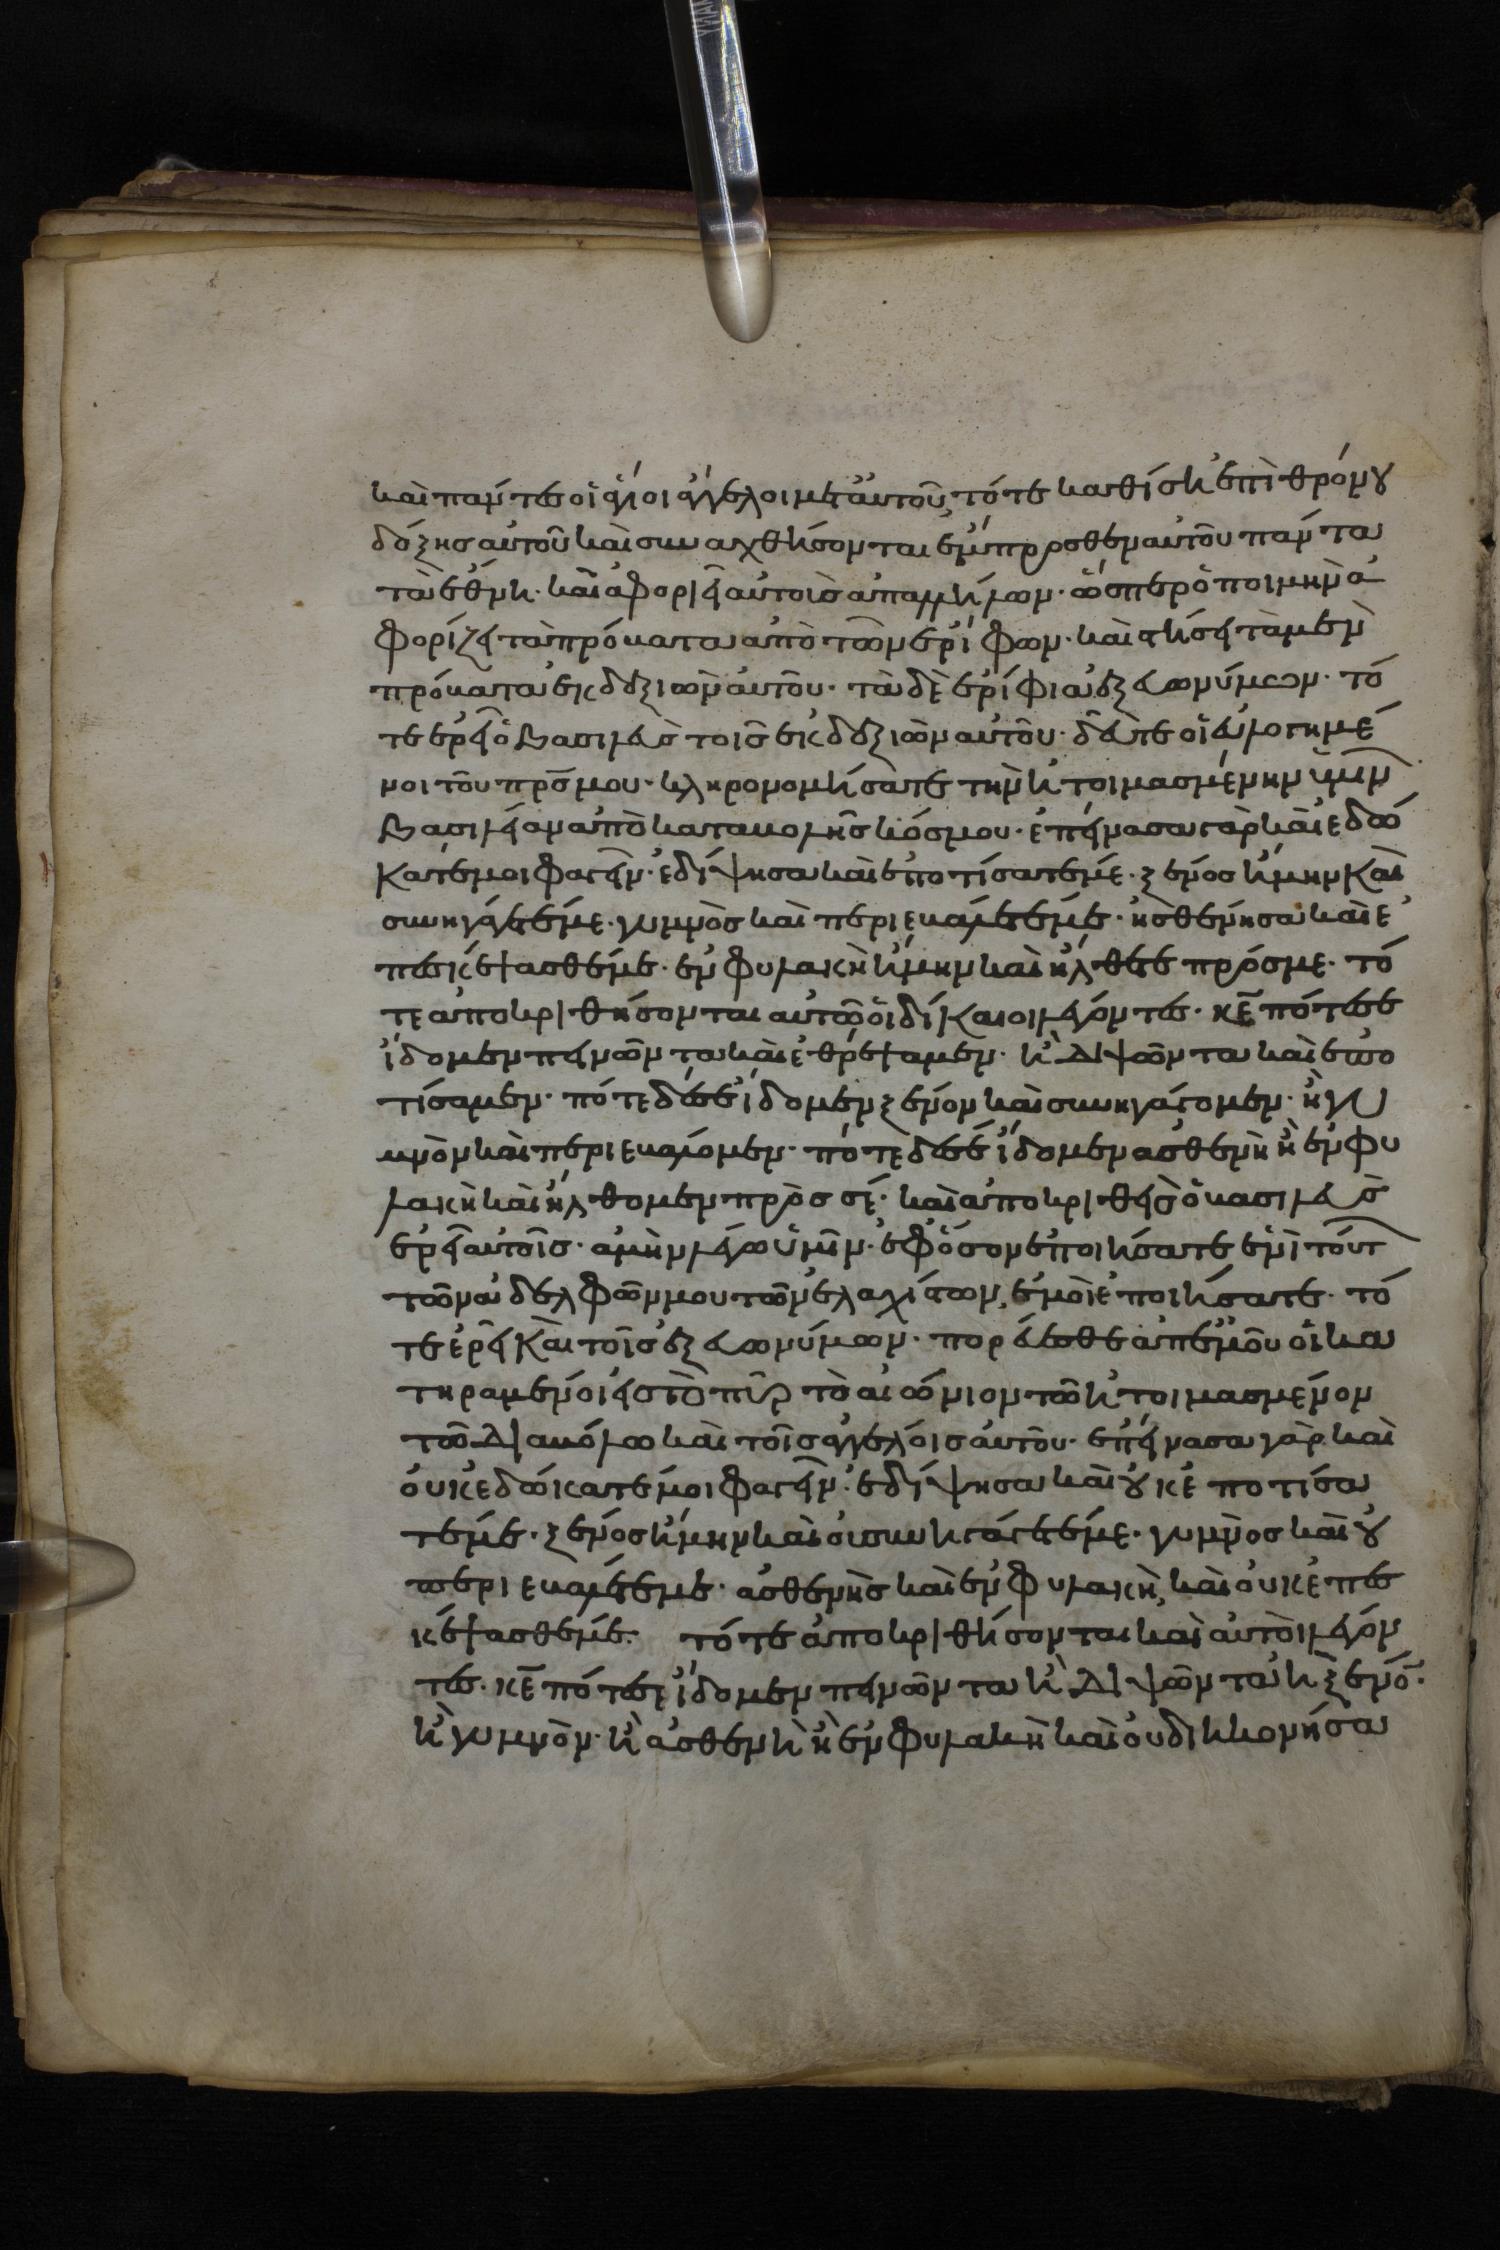 καὶ πάντες οἱ ἅγιοι ἄγγελοι μετ αὐτοῦ, τότε καθίση ἐπὶ θρόνου
δόξης αὐτοῦ καὶ συναχθήσονται ἔμπροσθεν αὐτοῦ πάντα
τὰ ἔθνη· καὶ ἀφοριεῖ αὐτοὺς ἀπαλλήλων· ὥσπερ ὁ ποιμὴν ἀ
φορίζει τὰ πρόβατα ἀπὸ τῶν ἐρίφων· καὶ στήσει τὰ μὲν
πρόβατα ἐκ δεξιῶν αὐτοῦ· τὰ δὲ ἐρίφια ἐξ εὐωνύμων· τό
τε ἐρεῖ ὁ βασιλεὺς τοῖς ἐκ δεξιῶν αὐτοῦ· δεῦτε οἱ εὐλογημέ
νοι τοῦ πρς μου· κληρονομήσατε τὴν ἡτοιμασμένην ὑμῖν
βασιλείαν ἀπὸ καταβολῆς κόσμου· ἐπείνασα γὰρ καὶ ἐδώ
κατέ μοι φαγεῖν· ἐδίψησα καὶ ἐποτίσατέ με· ξένος ἤμην καὶ
συνηγάγετέ με· γυμνὸς καὶ περιεβάλετέ με· ἠσθένησα καὶ ἐ
πεσκέψασθέ με· ἐν φυλακὴ ἤμην καὶ ἤλθετε πρός με· τό
τε ἀποκριθήσονται αὐτῶ οἱ δίκαιοι λέγοντες· κε πότε σε
ἴδομεν πεινῶντα καὶ ἐθρέψαμεν· ἢ διψῶντα καὶ ἐπο
τίσαμεν· πότε δέ σε ἴδομεν ξένον καὶ συνηγάγομεν· ἢ γυ
μνὸν καὶ περιεβάλομεν· πότε δέ σε ἴδομεν ἀσθενὴ ἢ ἐν φυ
λακὴ καὶ ἤλθομεν πρὸς σέ· καὶ ἀποκριθεὶς ὁ βασιλεὺς
ἐρεῖ αὐτοῖς· ἀμὴν λέγω ὑμῖν· ἐφόσον ἐποιήσατε ἑνὶ τούτ
τῶν ἀδελφῶν μου τῶν ἐλαχίστων, ἐμοὶ ἐποιήσατε· τό
τε ἐρεῖ καὶ τοῖς ἐξ εὐωνύμων· πορεύεσθε ἀπ ἐμοῦ οἱ κα
τηραμένοι εἰς τὸ πῦρ τὸ αἰώνιον τῶ ἡτοιμασμένον
τῶ διαβόλω καὶ τοῖς ἀγγέλοις αὐτοῦ· ἐπείνασα γὰρ καὶ
οὐκ ἐδώκατέ μοι φαγεῖν· ἐδίψησα καὶ οὐκ ἐποτίσα
τέ με· ξένος ἤμην καὶ οὐ συνηγάγετέ με· γυμνὸς καὶ οὐ
περιεβάλετέ με· ἀσθενὴς καὶ ἐν φυλακὴ, καὶ οὐκ ἐπε
σκέψασθέ με· τότε ἀποκριθήσονται καὶ αὐτοὶ λέγον
τες· κε πότε σε ἴδομεν πεινῶντα ἢ διψῶντα ἢ ξένον·
ἢ γυμνὸν· ἢ ἀσθενὴ ἢ ἐν φυλακὴ καὶ οὐ διηκονήσα